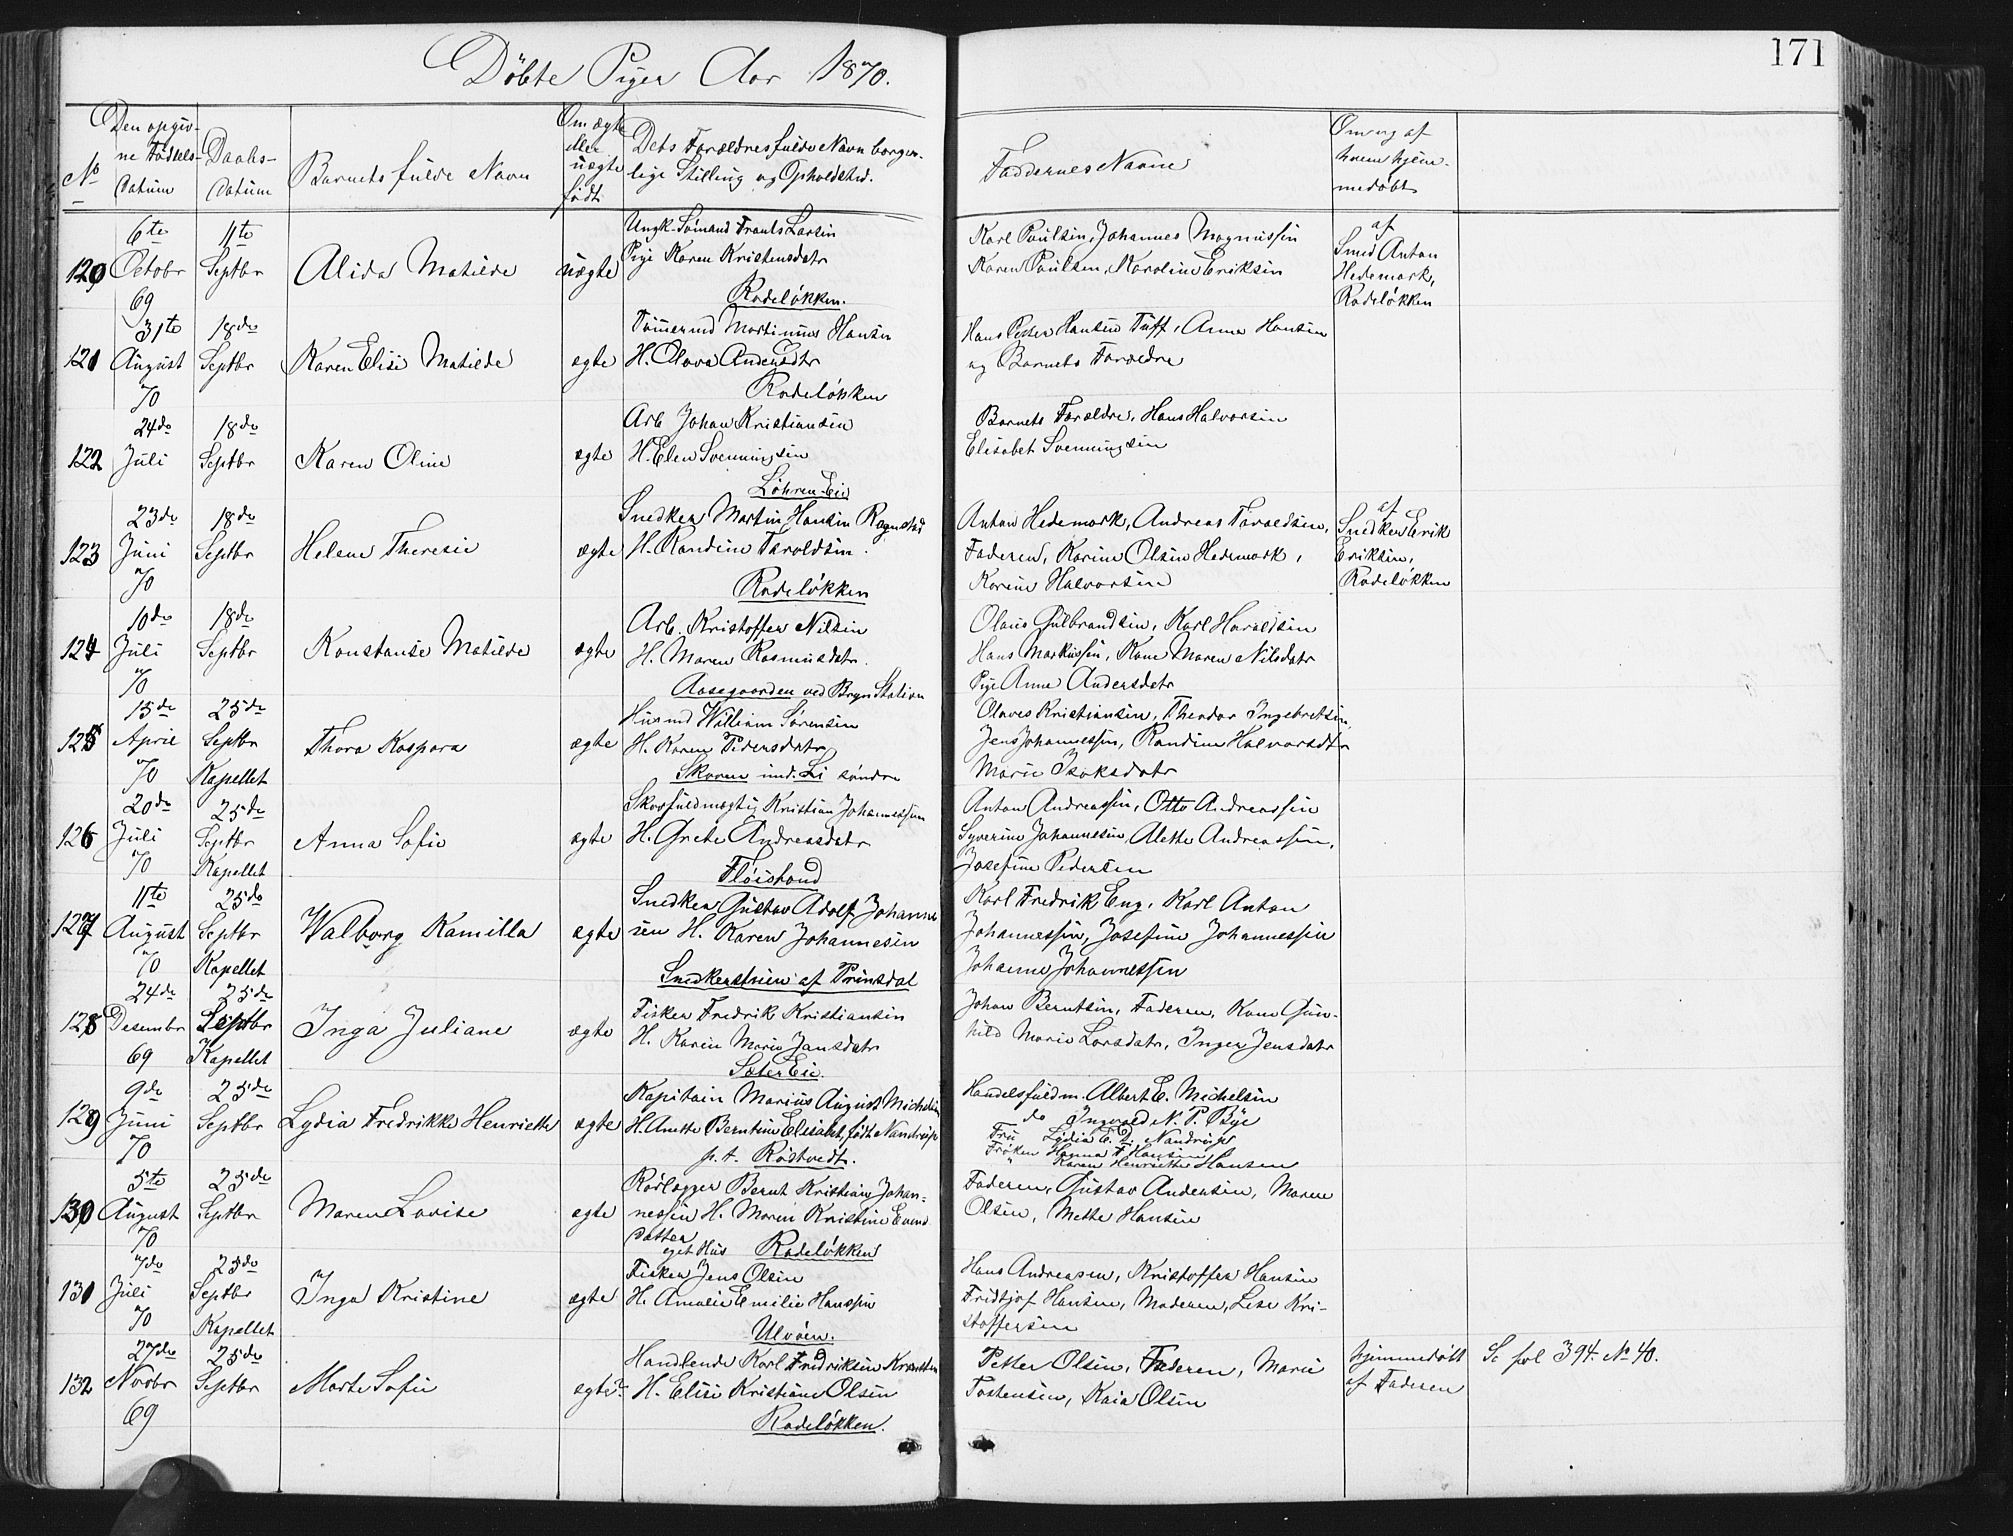 Døbte Piger Aar 1870.
171
No
Den opgiv-
ne Fødsels-
Datum
Daabs-
Datum
Barnets fulde Navn
Om ægte
eller
uægte
født
Dets Forældres fulde Navn borger-
lige Stilling og Opholdsted.
Faddernes Navne
Om og af
hvem hjem-
medøbt
6te
Octobr
69
11te
Septbr
120
Alida Matilde
uægte
Ungk. Sømand Frants Larsen
Pige Karen Kristensdatr
Rodeløkken.
Karl Paulsen, Johannes Magnussen
Karen Paulsen, Karoline Eriksen
af
Smed Anton
Hedemark,
Rodeløkken
121
31te
August
70
18de
Septbr
Karen Elise Matilde
ægte
Tømmermd Martinus Hansen
H. Olava Andersdtr
Rodeløkken
Hans Petter Hansen Tuff, Anne Hansen
og Barnets Forældre
122
24de
Juli
18de
Septbr
Karen Oline
ægte
Arb Johan Kristiansen
H. Elen Svenningsen
Løhren-Eie
Barnets Forældre, Hans Halvorsen
Elisabet Svenningsen
123
23de
Juni
70
18de
Septbr
Helene Theresie
ægte
Snedker Martin Hansen Rognstad
H. Randine Taraldsen.
Rodeløkken
Anton Hedemark, Andreas Taraldsen,
Faderen, Karine Olsen Hedemark,
Karine Halvorsen
af
Snedker Erik
Eriksen,
Rodeløkken
124
10de
Juli
70
18de
Septbr
Konstanse Matilde
ægte
Arb. Kristoffer Nilsen
H. Maren Rasmusdatr.
Aasegaarden ved Bryn Station
Olaus Gulbrandsen, Karl Haraldsen
Hans Markussen, Kone Maren Nilsdatr
Pige Anne Andersdatr
125
15de
April
70
25de
Septbr
Kapellet
Thora Kaspara
ægte
Husmd William Sørensen
H. Karen Pedersdatr
Skoren und. Li søndre
Olaves Kristiansen, Theodor Ingebretsen
Jens Johannessen, Randine Halvorsdtr
Marie Isaksdatr
126
20de
Juli
70
25de
Septbr
Kapellet
Anna Sofie
ægte
Skovfuldmægtig Kristian Johannessen
H. Grete Andreasdatr
Fløistand
Anton Andreassen, Otto Andreassen
Syverine Johannesen, Alette Andreassen,
Josefine Pedersen
127
11te
August
70
25de
Septbr
Kapellet
Walborg Kamilla
ægte
Snedker Gustav Adolf Johannes
sen H. Karen Johannesen
Snedkerstuen af Prinsdal
Karl Fredrik Eng, Karl Anton
Johannessen, Josefine Johannessen
Johanne Johannessen
128
24de
Desembr
69
25de
Septbr
Kapellet
Inga Juliane
ægte
Fisker Fredrik Kristiansen
H. Karen Marie Jansdatr
Sæter Eie.
Johan Berntsen, Faderen, Kone Gun-
hild Marie Larsdatr, Inger Jensdatr
129
9de
Juni
70
25de
Septbr
Lydia Fredrikke Henriette
ægte
Kapitain Marius August Michelsen
H. Anette Berntine Elisabet, født Nandrup
p.t. Rostvedt.
Handelsfuldm. Albert E. Michelsen
do Ingvald N. P. Bye
Fru Lydia E. D. Nandrup
Frøken Hanna F Hansen
" Karen Henriette Hansen
130
5te
August
70
25de
Septbr
Maren Lovise
ægte
Rørlægger Bernt Kristian Johan-
nessen H. Maren Kristine Evens
datter
eget Hus Rodeløkken
Faderen, Gustav Andersen, Maren
Olsen, Mette Hansen
131
7de
Juli
70
25de
Septbr
Kapellet
Inga Kristine
ægte
Fisker Jens Olsen
H. Amalie Emilie Hanssen
Ulvøen.
Hans Andreasen, Kristoffer Hansen
Fridtjof Hansen, Moderen, Lise Kri-
stoffersen
132
27de
Novbr
69
25de
Septbr
Marte Sofie
ægte
Handlende Karl Fredriksen
H. Elise Kristiane Olsen
Rodeløkken.
Petter Olsen, Faderen, Marie
Tostensen, Kaia Olsen
hjemmedøbt
af Faderen
Se fol 394. No 40.